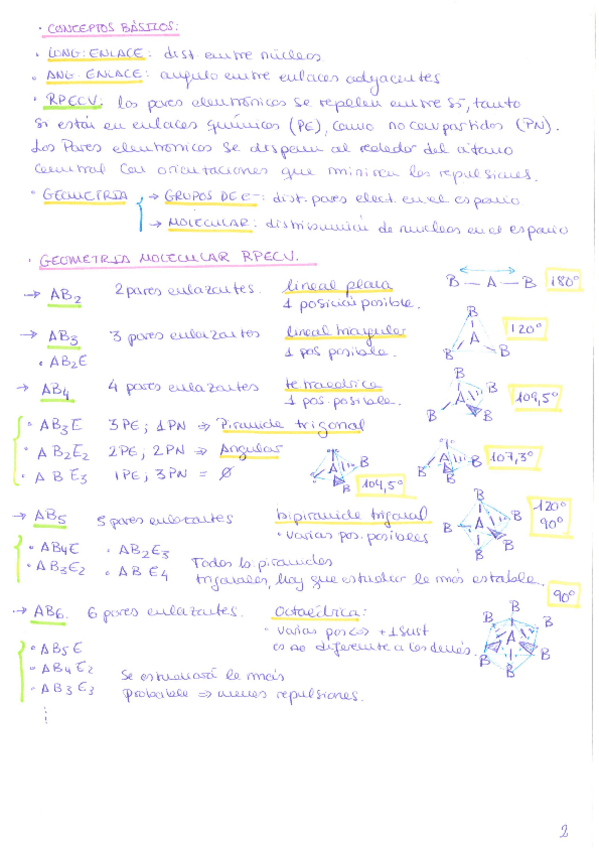 · CONCEPTOS BÁSICOS:
· LONG. ENLACE: dist. entre núcleos
· ANG. ENLACE: angulo entre enlaces adyacentes
· RPECV: los pares electrónicos se repelen entre sí, tanto
si están en enlaces químicos (PE), como no compartidos (PN).
Los Pares electronicos se disponen al rededor del átomo
central con orientaciones que minimicen las repulsiones.
· GEOMETRIA → GRUPOS DE e-: dist. pares elect. en el espacio
→ MOLECULAR: distribución de nucleos en el espacio
· GEOMETRIA MOLECULAR RPECV.
→ AB2 2 pares enlazantes. lineal plana B - A - B 180º
1 posición posible.
→ AB3 3 pares enlazantes lineal triangular B A B B 120º
· AB2E 1 pos posible.
→ AB4 4 pares enlazantes tetraédrica B A B B B 109,5º
1 pos. posible.
· AB3E 3PE; 1PN ⇒ Piramide trigonal
· AB2E2 2PE; 2PN ⇒ Angular A B B 104,5º A B B B 107,3º
· ABE3 1PE; 3PN = Ø
→ AB5 5 pares enlazantes bipiramide trigonal B B A B B B 120º 90º
· varias pos. posibles
· AB4E · AB2E3
· AB3E2 · ABE4 Todas bipiramides
trigonales, hay que estudiar la más estable.
→ AB6. 6 pares enlazantes. Octaédrica: B B B A B B B 90º
· varias pos + 1 sust
es no diferente a los demás.
· AB5E
· AB4E2 Se estudiará la más
· AB3E3 probable ⇒ menos repulsiones.
⋮
2